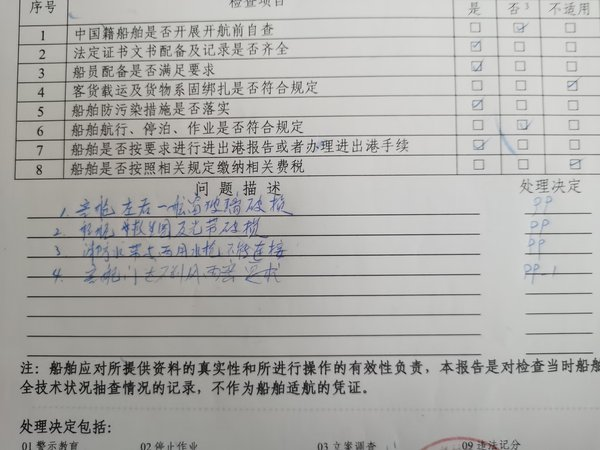 序号 检查项目 是 否 不适用
1 中国籍船舶是否开展开航前自查 □ ☑ □
2 法定证书文书配备及记录是否齐全 ☑ □ □
3 船员配备是否满足要求 ☑ □ □
4 客货载运及货物系固绑扎是否符合规定 □ □ ☑
5 船舶防污染措施是否落实 ☑ □ □
6 船舶航行、停泊、作业是否符合规定 □ ☑ □
7 船舶是否按要求进行进出港报告或者办理进出港手续 ☑ □ □
8 船舶是否按照相关规定缴纳相关费税 □ □ ☑
问题描述 处理决定
1. 左右一 窗玻璃破损
2. 救生圈及 破损
3. 消防水带与 不能连接
4.
注：船舶应对所提供资料的真实性和所进行操作的有效性负责，本报告是对检查当时船舶
全技术状况抽查情况的记录，不作为船舶适航的凭证。
处理决定包括：
01 警示教育 02 停止作业 03 立案调查 09 违法记分